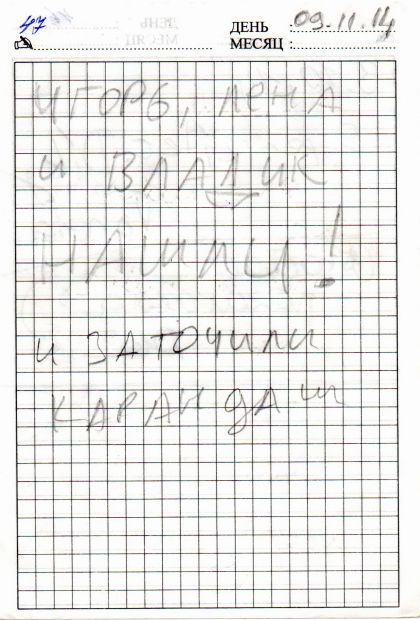 47
ДЕНЬ : 09.11.14
МЕСЯЦ :
ИГОРЬ, ЛЕНА
И ВЛАДИК
НАШЛИ!
И ЗАТОЧИЛИ
КАРАНДАШ